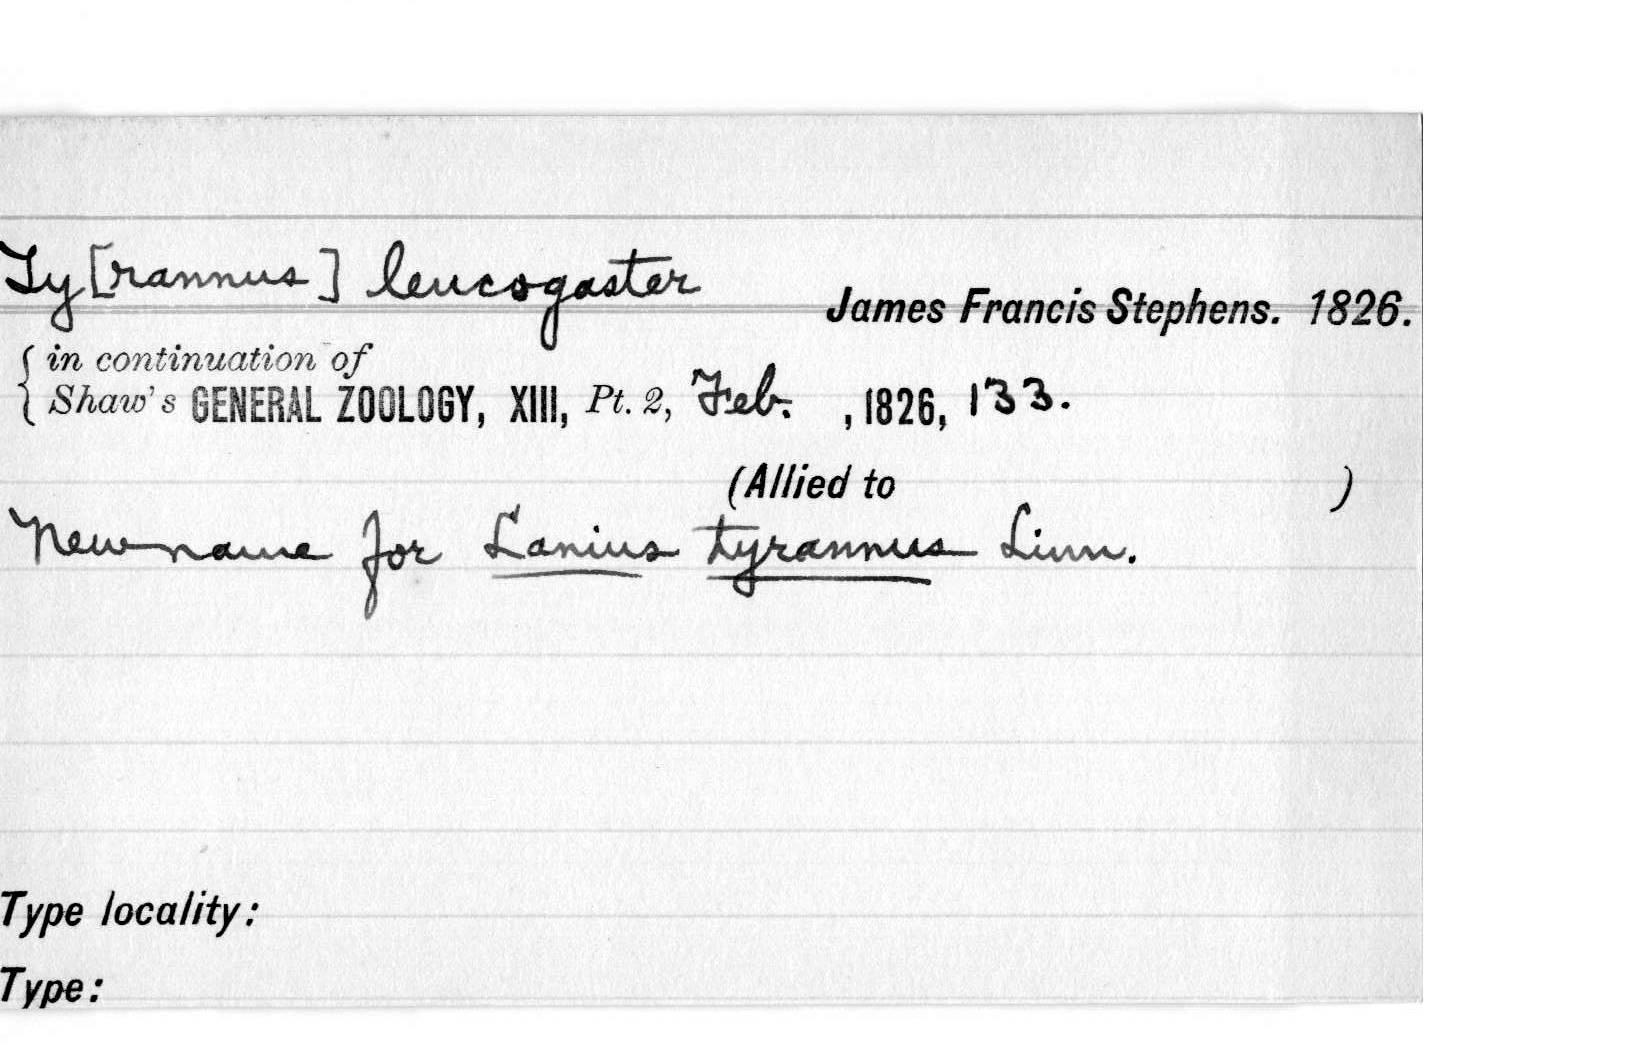 Ty[rannus] leucogaster
James Francis Stephens. 1826.
in continuation of
Shaw's GENERAL ZOOLOGY, XIII, Pt. 2, Feb. , 1826, 133.
(Allied to )
New name for Lanius tyrannus Linn.
Type locality:
Type: